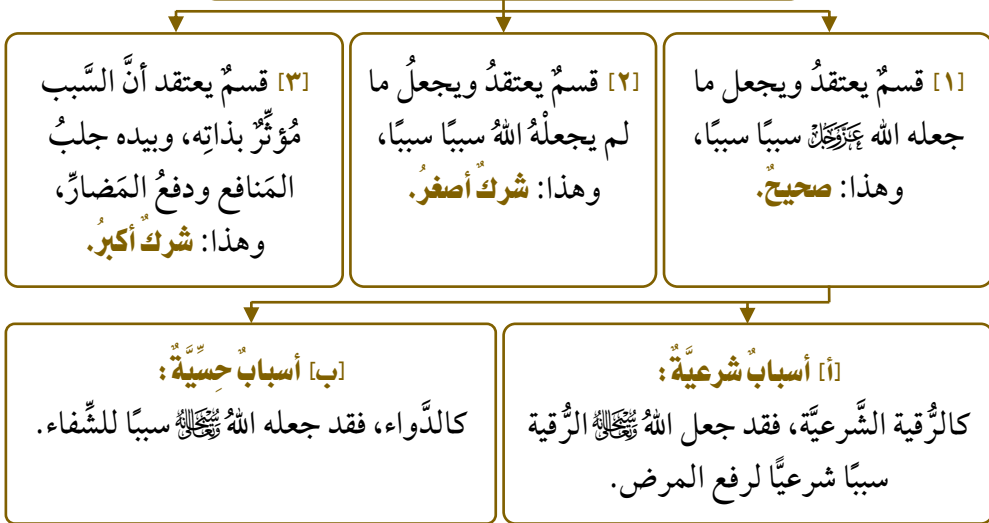 [١] قسمٌ يعتقدُ ويجعل ما
جعله الله عَزَّوَجَلَّ سببًا سببًا،
وهذا: صحيحٌ.
[٢] قسمٌ يعتقدُ ويجعلُ ما
لم يجعلْهُ اللهُ سببًا سببًا،
وهذا: شركٌ أصغرُ.
[٣] قسمٌ يعتقد أنَّ السَّبب
مُؤثِّرٌ بذاتِه، وبيده جلبُ
المَنافع ودفعُ المَضارِّ،
وهذا: شركٌ أكبرُ.
[أ] أسبابٌ شرعيَّةٌ:
كالرُّقية الشَّرعيَّة، فقد جعل اللهُ سُبْحَانَهُ وَتَعَالَى الرُّقية
سببًا شرعيًّا لرفع المرض.
[ب] أسبابٌ حسِّيَّةٌ:
كالدَّواء، فقد جعله اللهُ سُبْحَانَهُ وَتَعَالَى سببًا للشِّفاء.